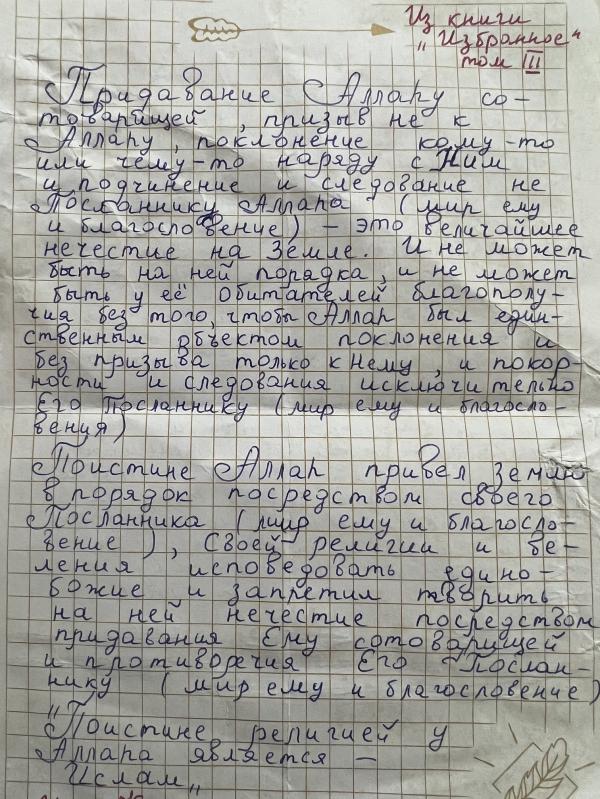 Из книги
„Избранное"
том III
Придавание Аллаху со-
товарищей, призыв не к
Аллаху, поклонение кому-то
или чему-то наряду с Ним
и подчинение и следование не
Посланнику Аллаха (мир ему
и благословение) – это величайшее
нечестие на Земле. И не может
быть на ней порядка, и не может
быть у её обитателей благополу-
чия без того, чтобы Аллах был един-
ственным объектом поклонения и
без призыва только к Нему, и покор-
ности и следования исключительно
Его Посланнику (мир ему и благосло-
вения)
Поистине Аллах привел землю
в порядок посредством своего
Посланника (мир ему и благосло-
вение), своей религии и ве-
ления исповедовать едино-
божие и запретил творить
на ней нечестие посредством
придавания Ему сотоварищей
и противоречия Его Послан-
нику (мир ему и благословение)
„Поистине религией у
Аллаха является –
Ислам„